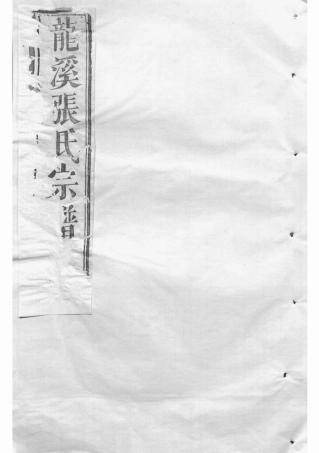 龍溪張氏宗譜